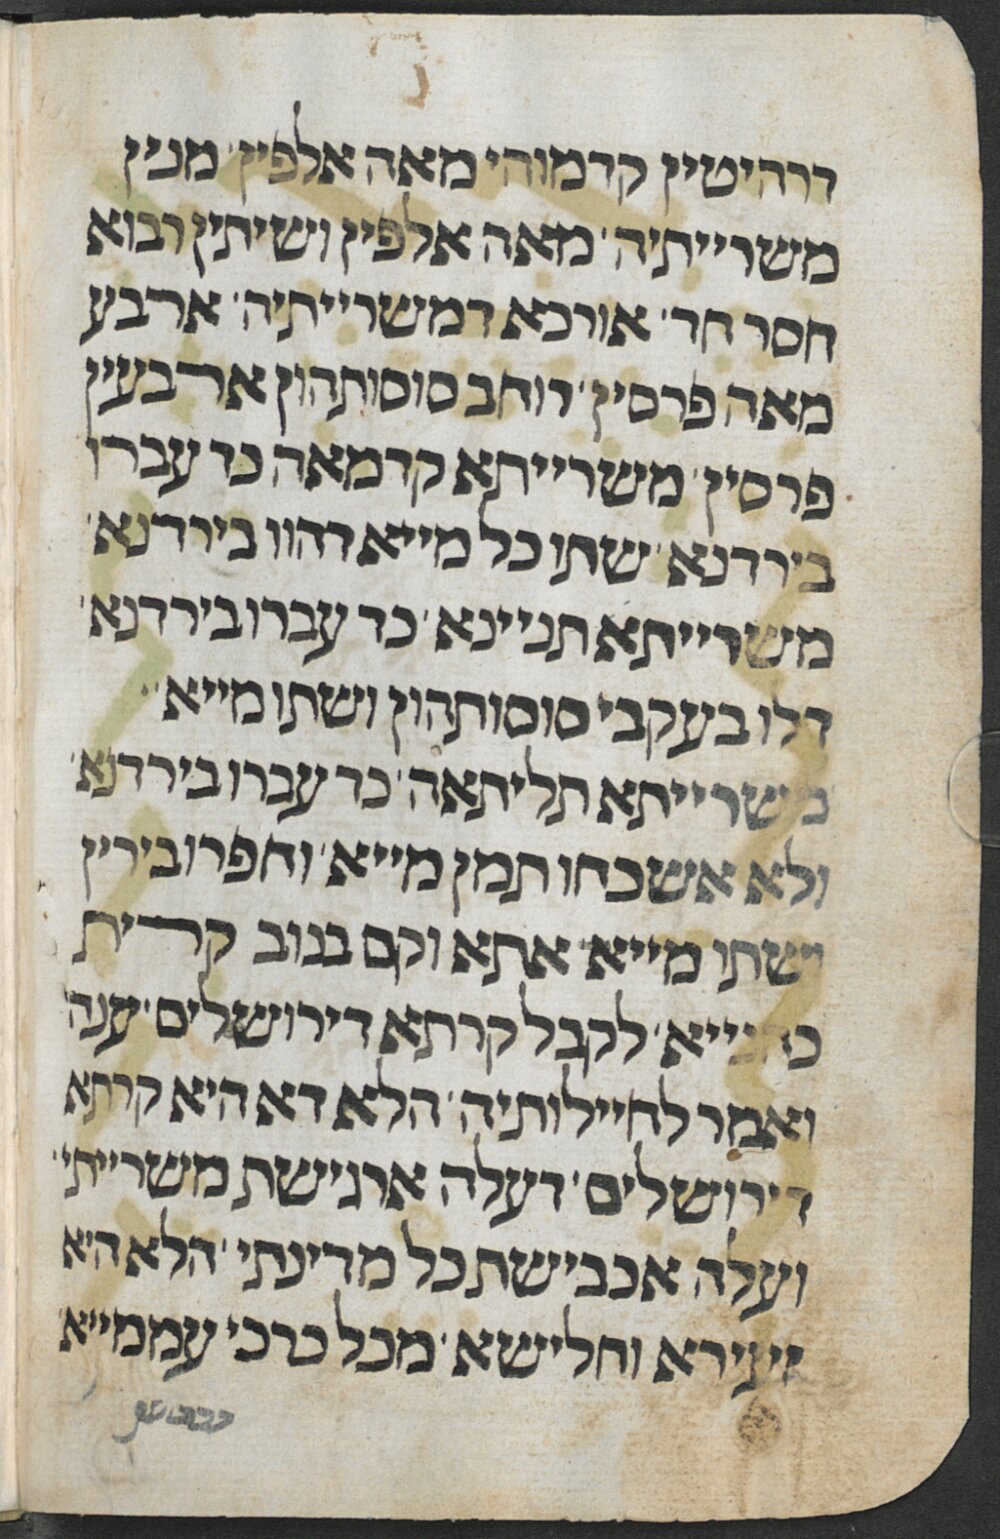 דרהיטין קדמוהי מאה אלפין מנין
משרייתיה מאה אלפין ושיתין רבוא
חסר חד אורכא דמשרייתיה ארבע
מאה פרסין רוחב סוסותהון ארבעין
פרסין משרייתא קדמאה כד עברו
בירדנא שתו כל מייא דהוו בירדנא
משרייתא תניינא כד עברו בירדנא
דלו בעקבי סוסותהון ושתו מייא
משרייתא תליתאה כד עברו בירדנא
ולא אשכחו תמן מייא וחפרו בירין
ושתו מייא אתא וקם בנוב קרית
כהנייא לקבל קרתא דירושלים ענה
ואמר לחיילותיה הלא דא היא קרתא
דירושלים דעלה ארגישת משרייתי
ועלה אכבישת כל מדינתי הלא היא
זעירא וחלישא מכל כרכי עממייא